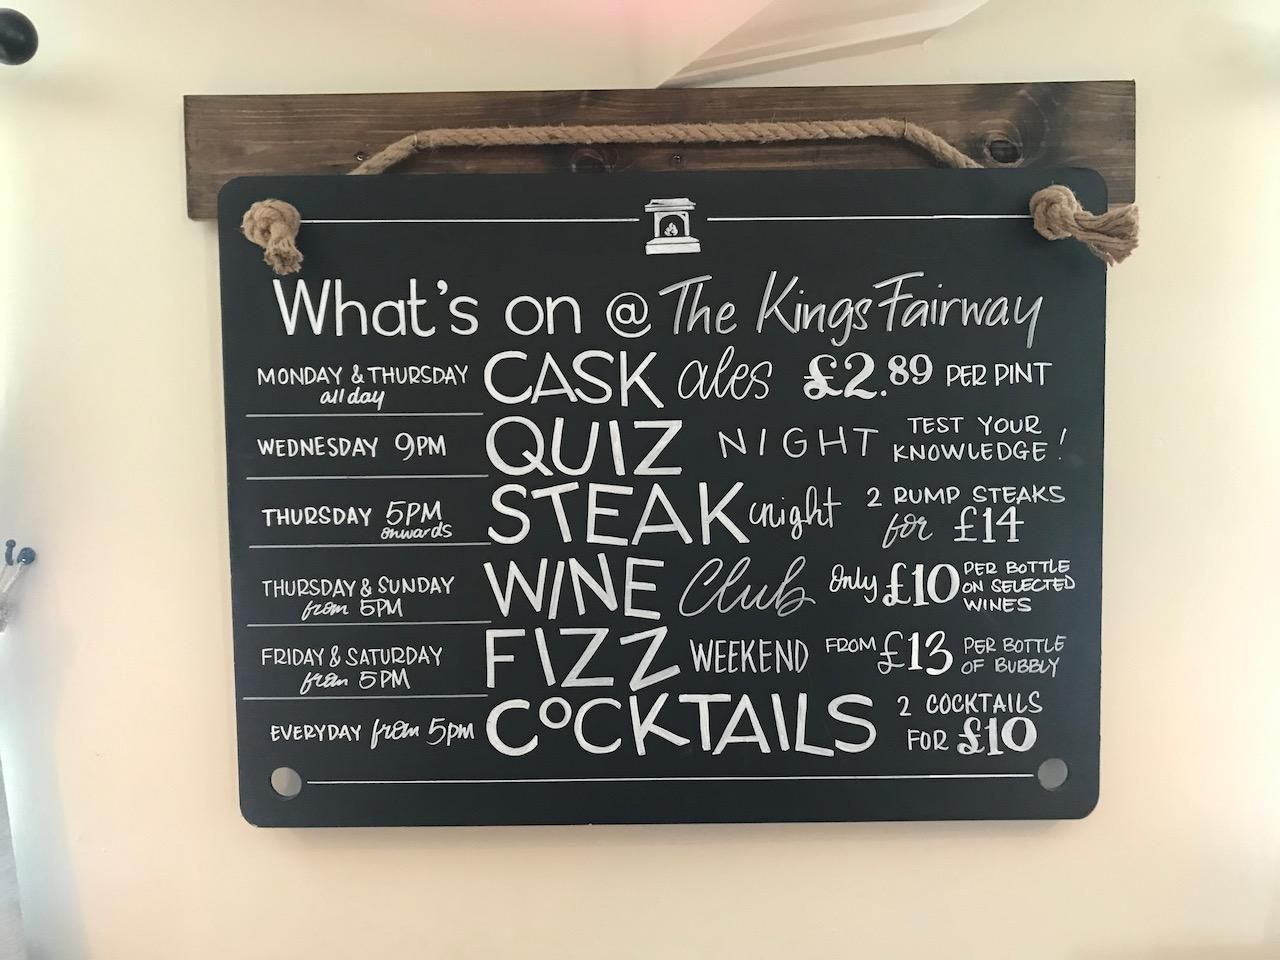 What's on @ The Kings Fairway
MONDAY & THURSDAY
all day
CASK ales £2.89 PER PINT
WEDNESDAY 9PM
QUIZ NIGHT
TEST YOUR
KNOWLEDGE!
THURSDAY 5PM
onwards
STEAK night
2 RUMP STEAKS
for £14
THURSDAY & SUNDAY
from 5PM
WINE Club
Only £10
PER BOTTLE
ON SELECTED
WINES
FRIDAY & SATURDAY
from 5PM
FIZZ WEEKEND
FROM £13
PER BOTTLE
OF BUBBLY
EVERYDAY from 5pm
COCKTAILS
2 COCKTAILS
FOR £10